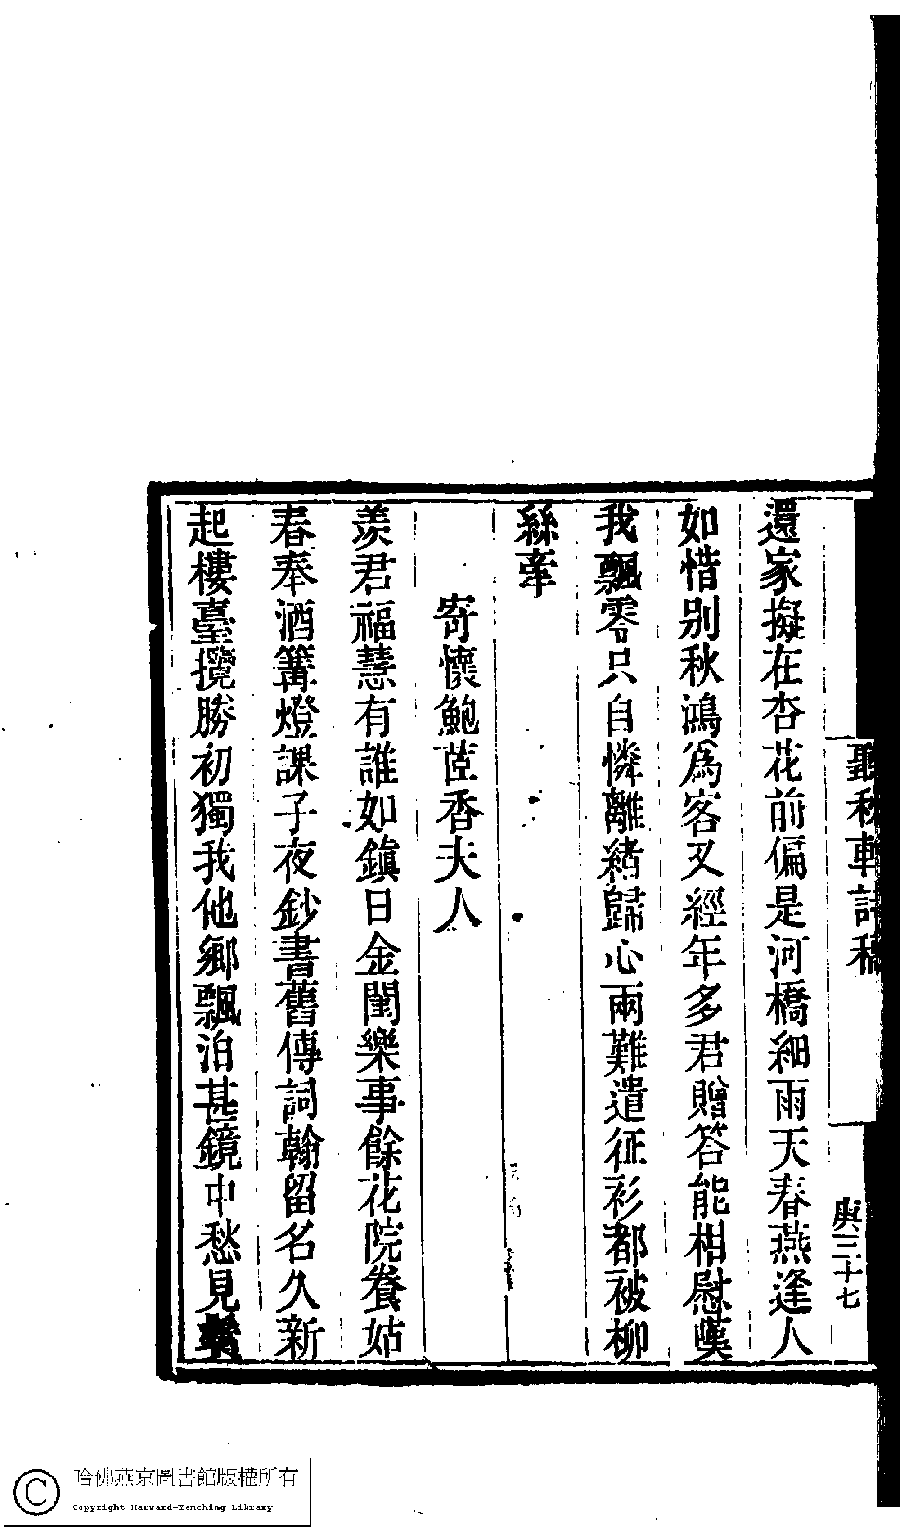 聽秋軒詩稿
與三十七
還家擬在杏花前偏是河橋細雨天春燕逢人
如惜别秋鴻爲客又經年多君贈答能相慰嘆
我飄零只自憐離緒歸心兩難遣征衫都被柳
絲牽
寄懷鮑茝香夫人
羨君福慧有誰如鎮日金閨樂事餘花院養姑
春奉酒篝燈課子夜鈔書舊傳詞翰留名久新
起樓臺攬勝初獨我他鄉飄泊甚鏡中愁見
哈佛燕京圖書館版權所有
Copyright Harvard-Yenching Library